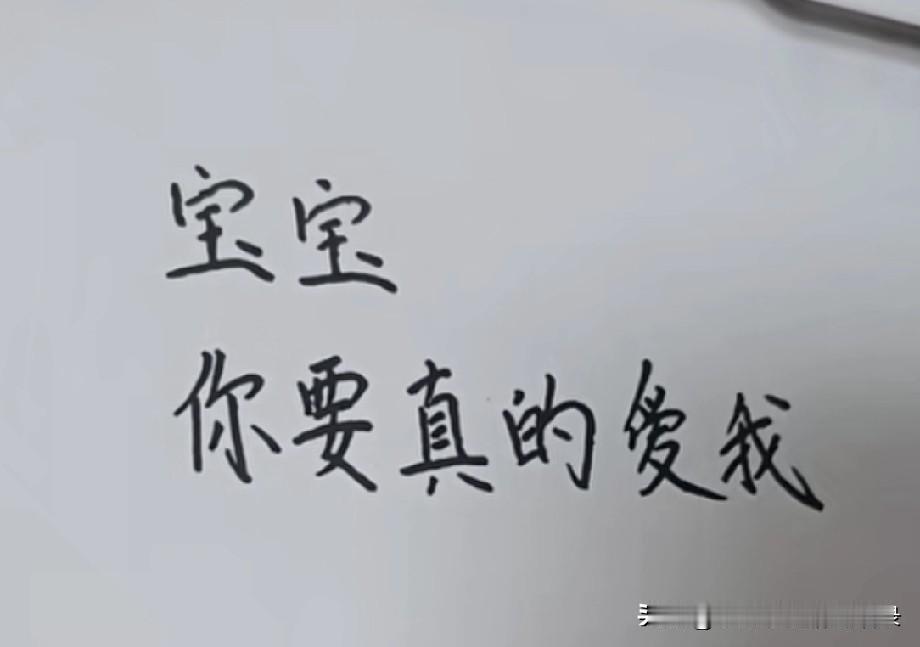 宝宝
你要真的爱我